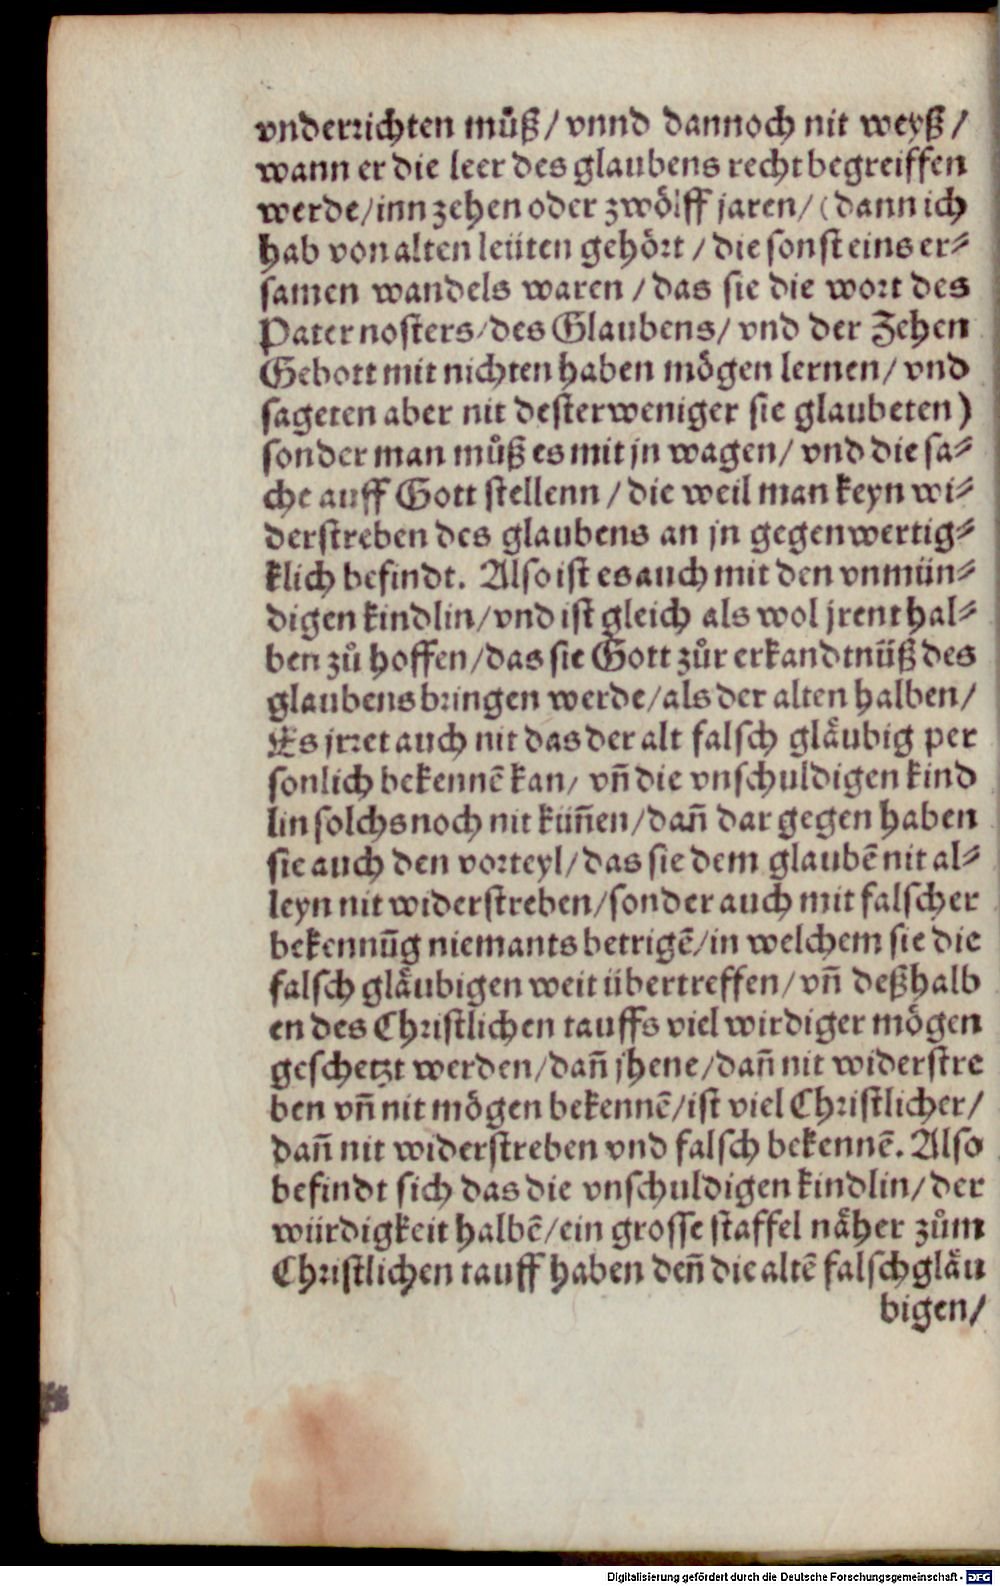 vnderrichten můß/ vnnd dannoch nit weyß/
wann er die leer des glaubens recht begreiffen
werde/ inn zehen oder zwölff jaren/ (dann ich
hab von alten leüten gehört / die sonst eins er⸗
samen wandels waren / das sie die wort des
Pater nosters/ des Glaubens/ vnd der Zehen
Gebott mit nichten haben mögen lernen/ vnd
sageten aber nit dester weniger sie glaubeten)
sonder man můß es mit jn wagen/ vnd die sa⸗
che auff Gott stellenn / die weil man keyn wi⸗
derstreben des glaubens an jn gegenwertig⸗
klich befindt. Also ist es auch mit den vnmün⸗
digen kindlin/ vnd ist gleich als wol jrent hal⸗
ben zů hoffen/ das sie Gott zůr erkandtnüß des
glaubens bringen werde/ als der alten halben/
Es jrret auch nit das der alt falsch gläubig per
sonlich bekennē kan/ vñ die vnschuldigen kind
lin solchs noch nit küñen/ dañ dar gegen haben
sie auch den vorteyl/ das sie dem glaubē nit al⸗
leyn nit widerstreben/ sonder auch mit falscher
bekennūg niemants betrigē/ in welchem sie die
falsch gläubigen weit übertreffen/ vñ deßhalb
en des Christlichen tauffs viel wirdiger mögen
geschetzt werden/ dañ jhene/ dañ nit widerstre
ben vñ nit mögen bekennē/ ist viel Christlicher/
dañ nit widerstreben vnd falsch bekennē. Also
befindt sich das die vnschuldigen kindlin/ der
würdigkeit halbē/ ein grosse staffel näher zům
Christlichen tauff haben deñ die altē falschgläu
bigen/
Digitalisierung gefördert durch die Deutsche Forschungsgemeinschaft - DFG